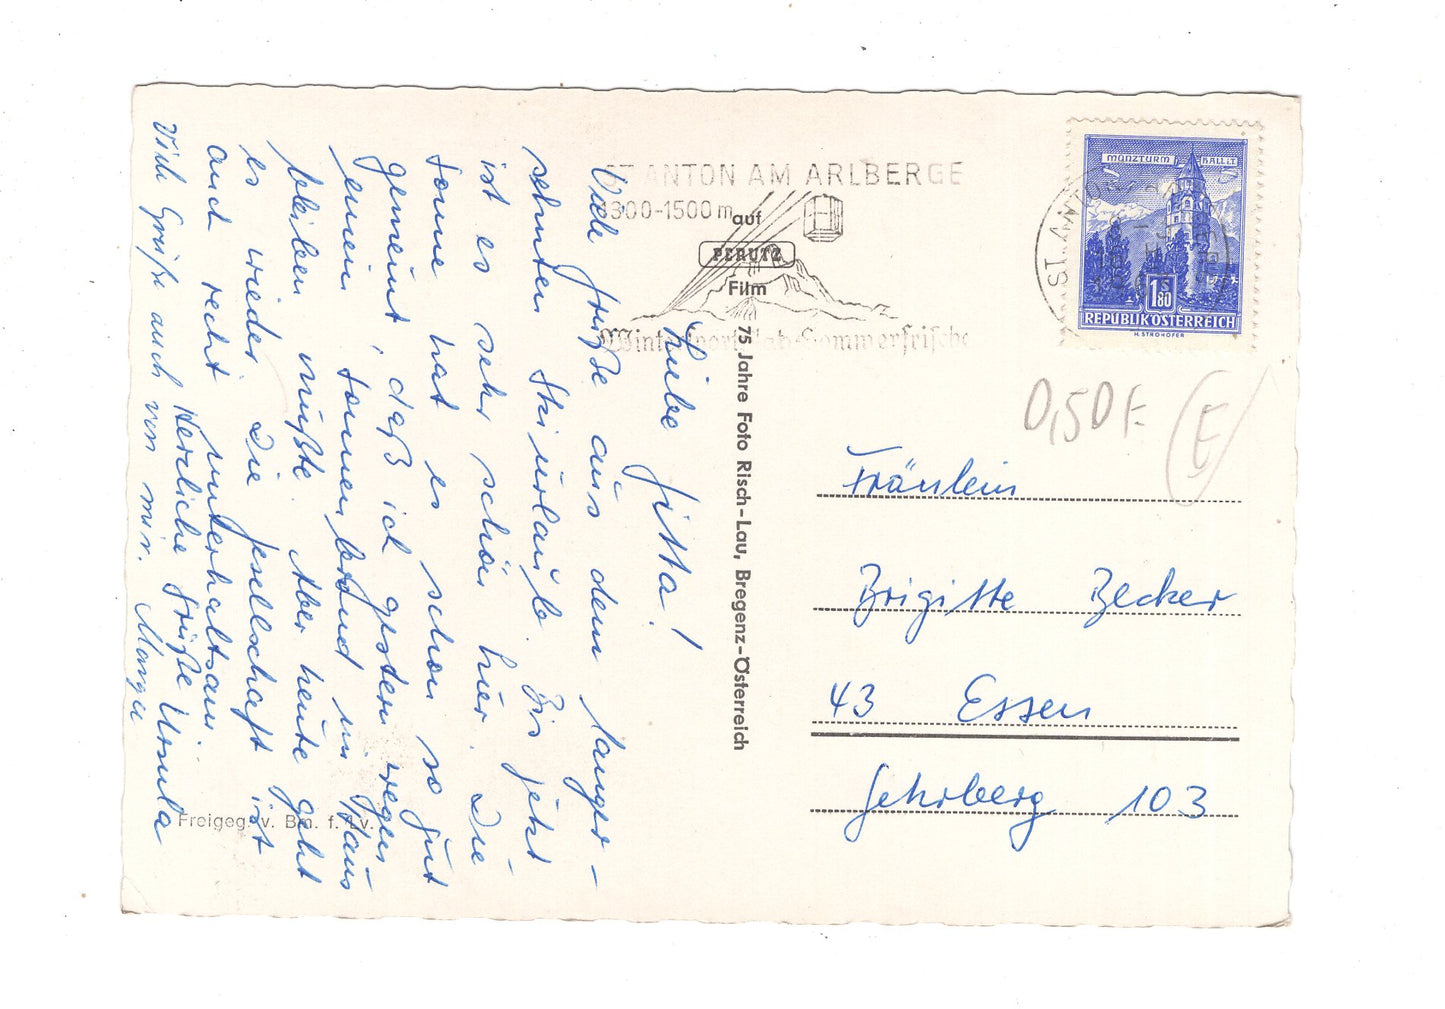 Liebe Gitta!
Viele Grüße aus dem langer-
sehnten Skiurlaub. Bis jetzt
ist es sehr schön hier. Die
Sonne hat es schon so gut
gemeint, daß ich gestern wegen
einem Sonnenbrand im Haus
bleiben mußte. Aber heute geht
es wieder. Die Gesellschaft ist
auch recht unterhaltsam.
Herzliche Grüße Ursula
Viele Grüße auch von mir.
ST ANTON AM ARLBERGE
1300-1500 m
Wintersportplatz Sommerfrische
auf
PERUTZ
Film
75 Jahre Foto Risch-Lau, Bregenz-Österreich
Freigeg. v. Bm. f. Lv.
MÜNZTURM HALL I.T.
1.80
REPUBLIK ÖSTERREICH
H. STROHOFER
ST. ANTON
0,50 €
E
Fräulein
Brigitte Becker
43 Essen
Gehrberg 103